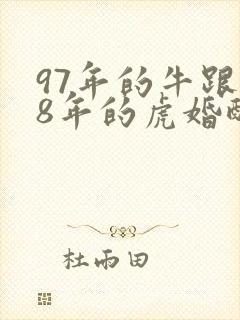 97年的牛跟
8年的虎婚配
杜雨田